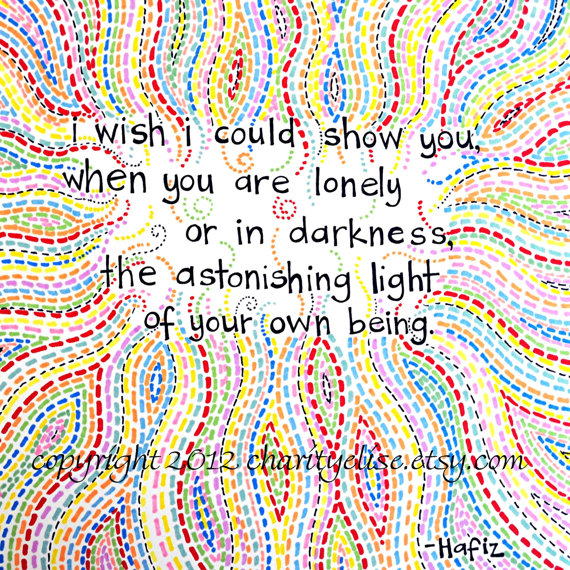 i wish i could show you,
when you are lonely
or in darkness,
the astonishing light
of your own being.
copyright 2012 charityelise.etsy.com
-Hafiz